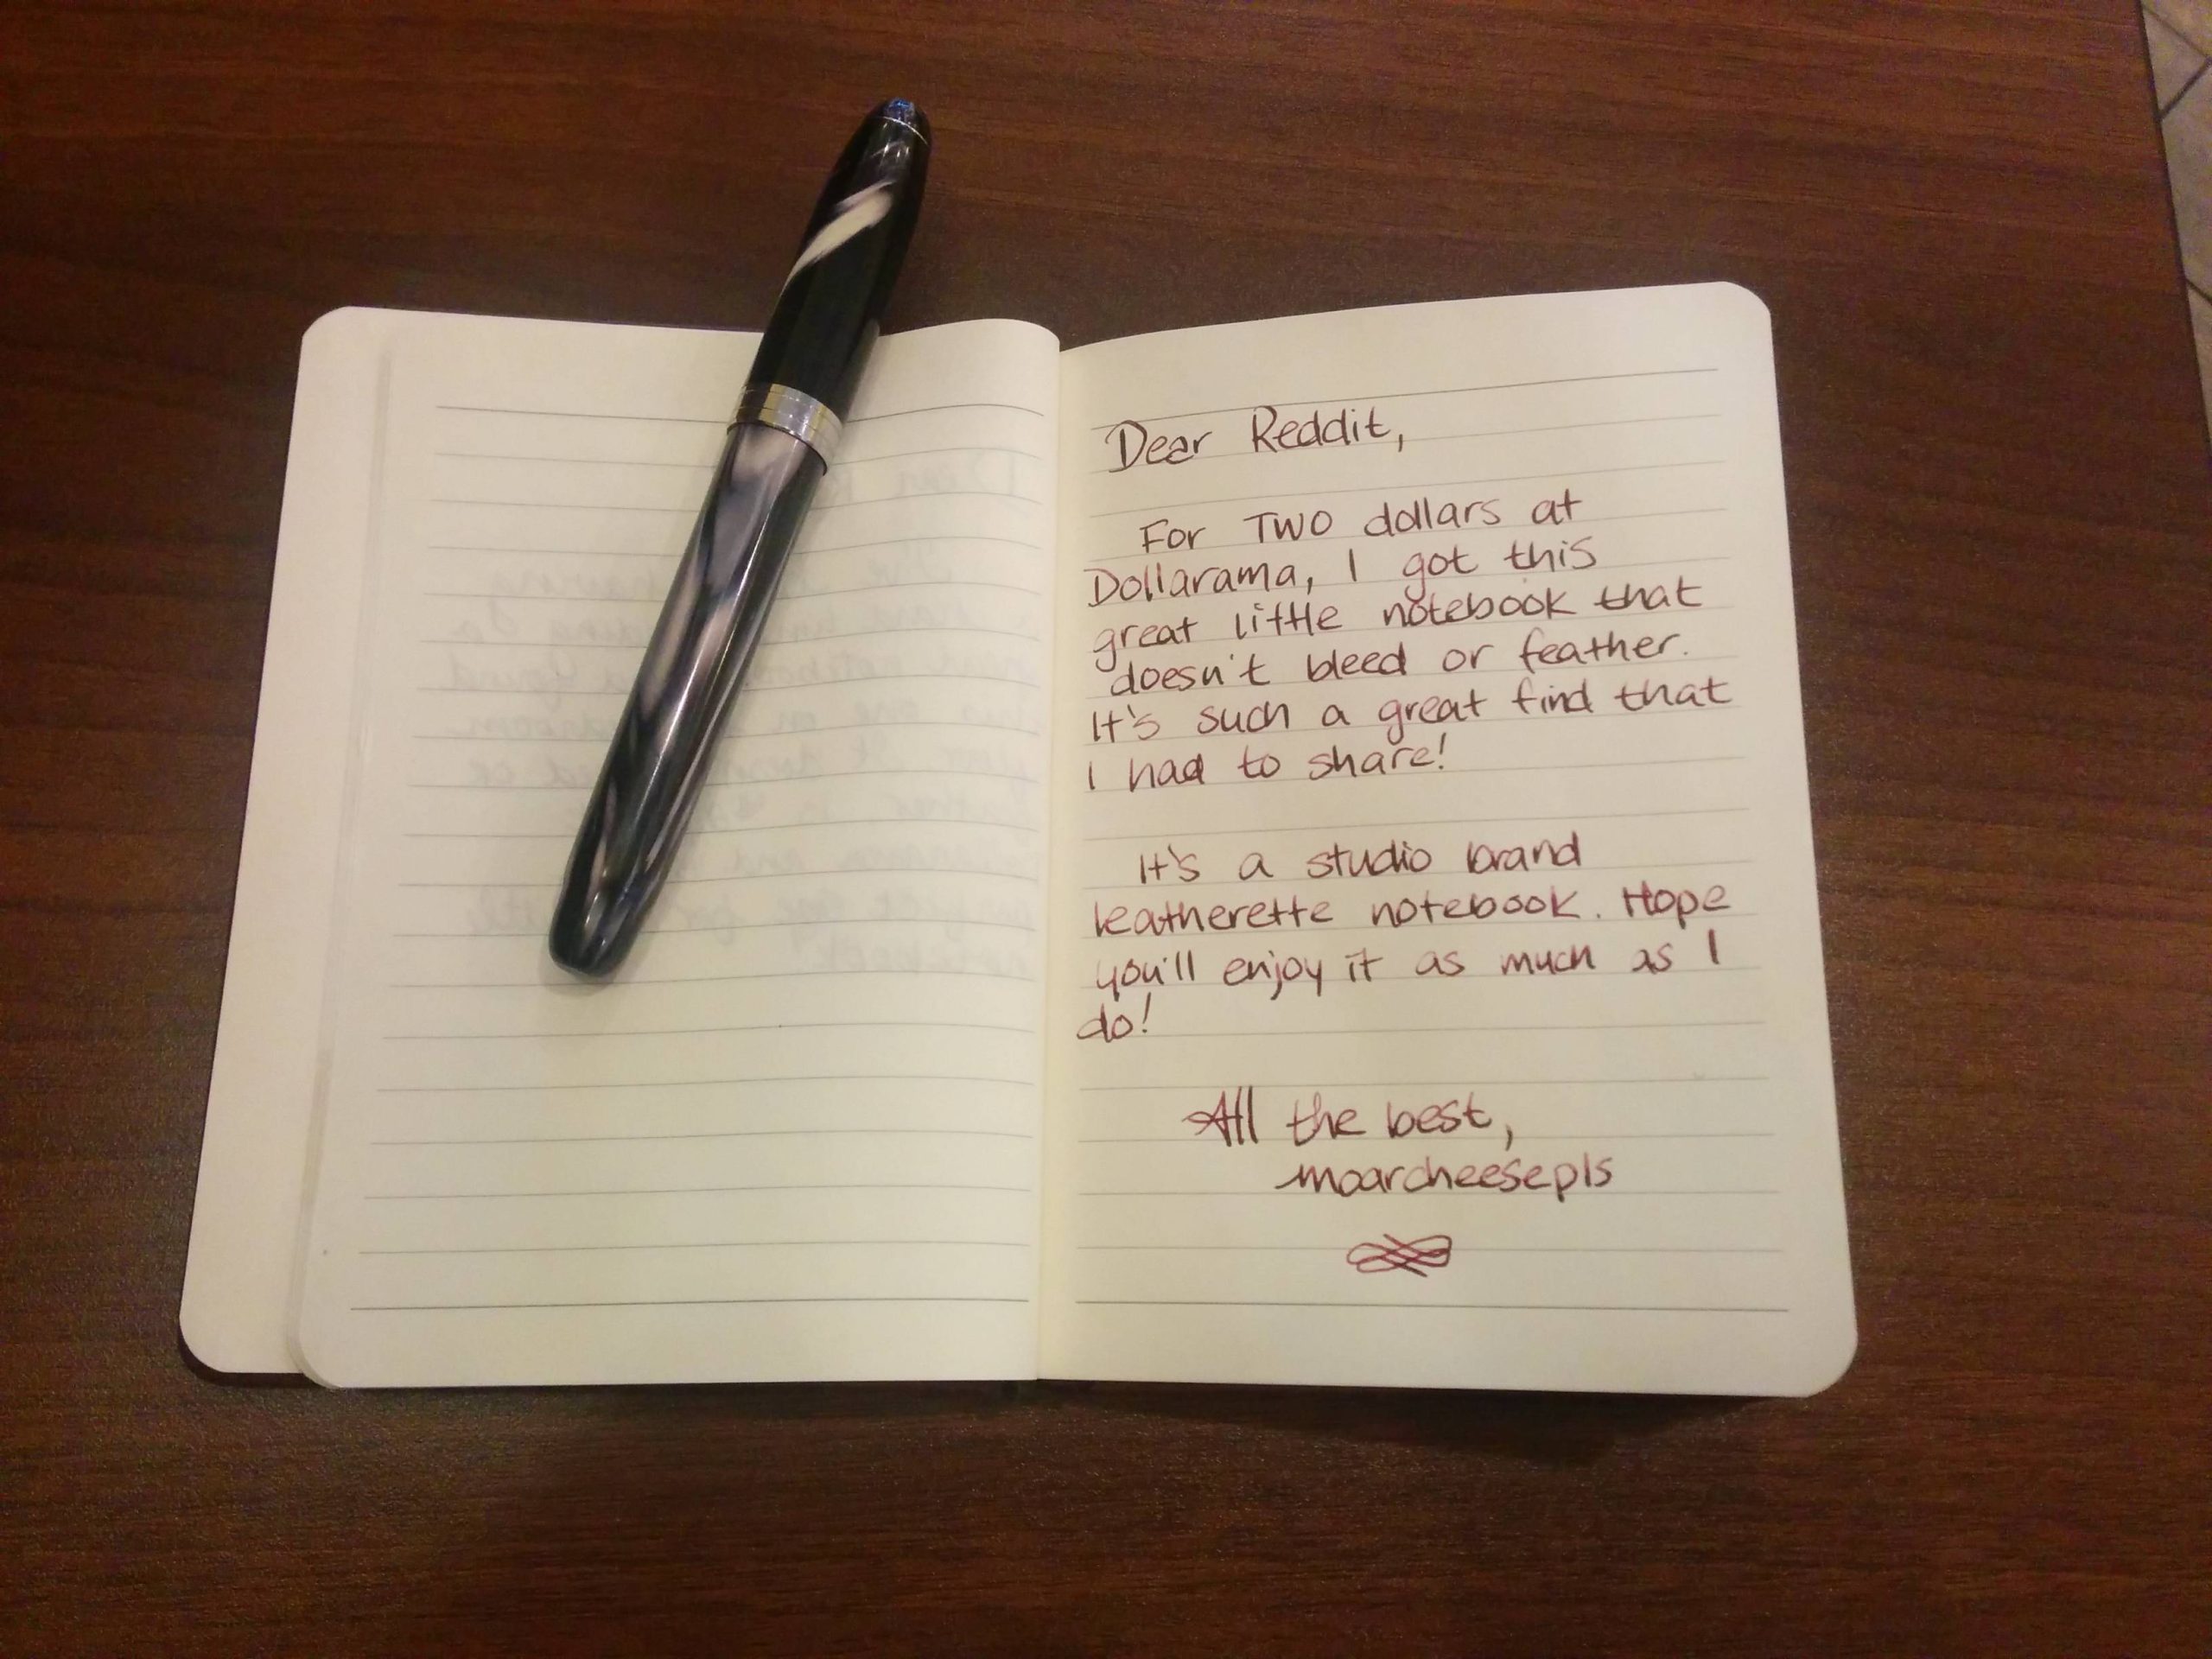 Dear Reddit,
For TWO dollars at
Dollarama, I got this
great little notebook that
doesn't bleed or feather.
It's such a great find that
I had to share!
It's a studio brand
leatherette notebook. Hope
you'll enjoy it as much as I
do!
All the best,
moarcheesepls